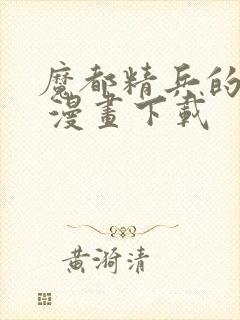 魔都精兵的
漫畫下載
黃漪清